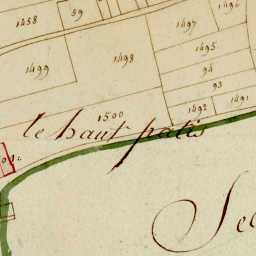 1496
1497
59
1458
1495
1498
1499
94
93
1491
1492
1500
le haut patis
Sec